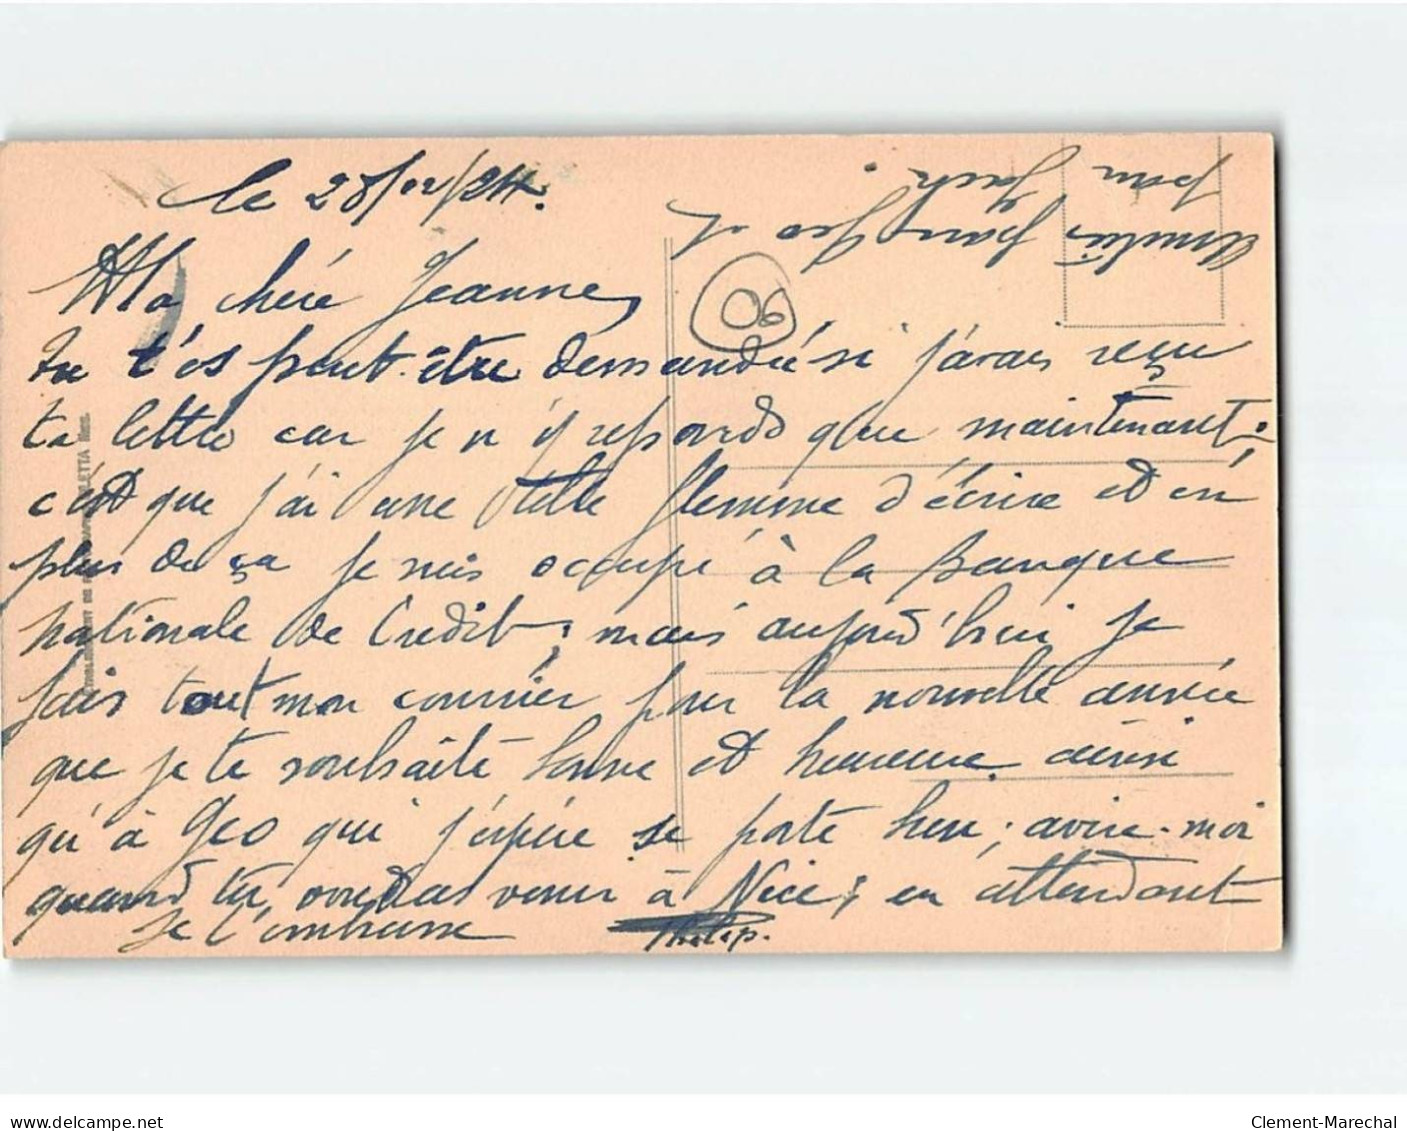 le 28/12/24.
Ma chéré Jeanne,
tu t'es peut-être demandé si j'avais reçu
ta lettre car je n'y reponds que maintenant.
c'est que j'ai une telle flemme d'écrire et en
plus de ça je suis occupé à la Banque
Nationale de Credit; mais aujourd'hui je
fais tout mon courrier pour la nouvelle année
que je te souhaite bonne et heureuse ainsi
qu'à Geo qui j'espère se porte bien; avise-moi
quand tu voudras venir à Nice; en attendant
je t'embrasse
06
DE
delcampe.net
Clement-Marechal